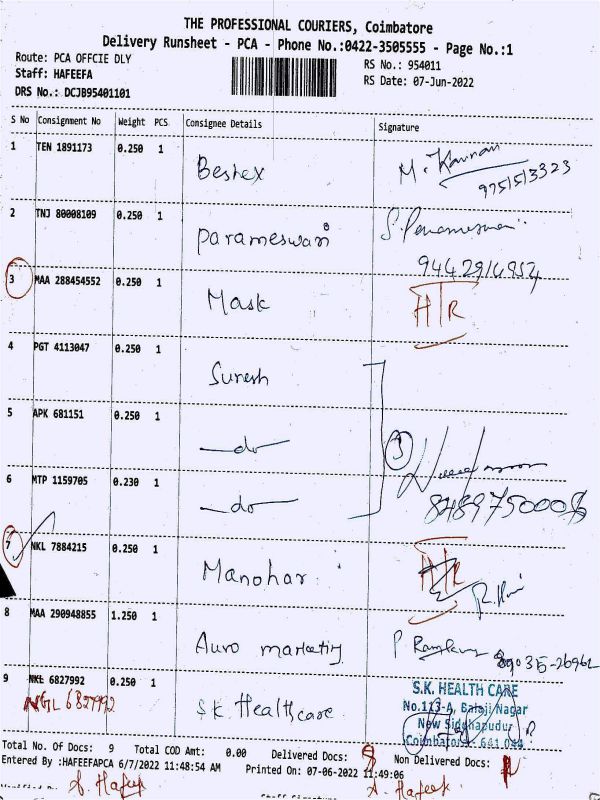 THE PROFESSIONAL COURIERS, Coimbatore
Delivery Runsheet - PCA - Phone No.:0422-3505555 - Page No.:1
Route: PCA OFFCIE DLY
RS No.: 954011
Staff: HAFEEFA
RS Date: 07-Jun-2022
DRS No.: DCJB95401101
S No Consignment No Weight PCS Consignee Details Signature
1 TEN 1891173 0.250 1 Bestex M. Kannan
9751513323
2 TNJ 80008109 0.250 1 Parameswari
9442914954
3 MAA 288454552 0.250 1 Mask HTR
4 PGT 4113047 0.250 1 Suresh
5 APK 681151 0.250 1 do
3
6 MTP 1159705 0.230 1 do
8489750008
7 NKL 7884215 0.250 1 Manohar
8 MAA 290948855 1.250 1 Auro marketing
9 NKL 6827992 0.250 1 S.K. Healthcare
NGL 6827992
S.K. HEALTH CARE
No.113-A, Balaji Nagar
New Siddhapudur
Coimbatore - 641 044
Total No. Of Docs: 9 Total COD Amt: 0.00 Delivered Docs: Non Delivered Docs:
Entered By :HAFEEFAPCA 6/7/2022 11:48:54 AM Printed On: 07-06-2022 11:49:06